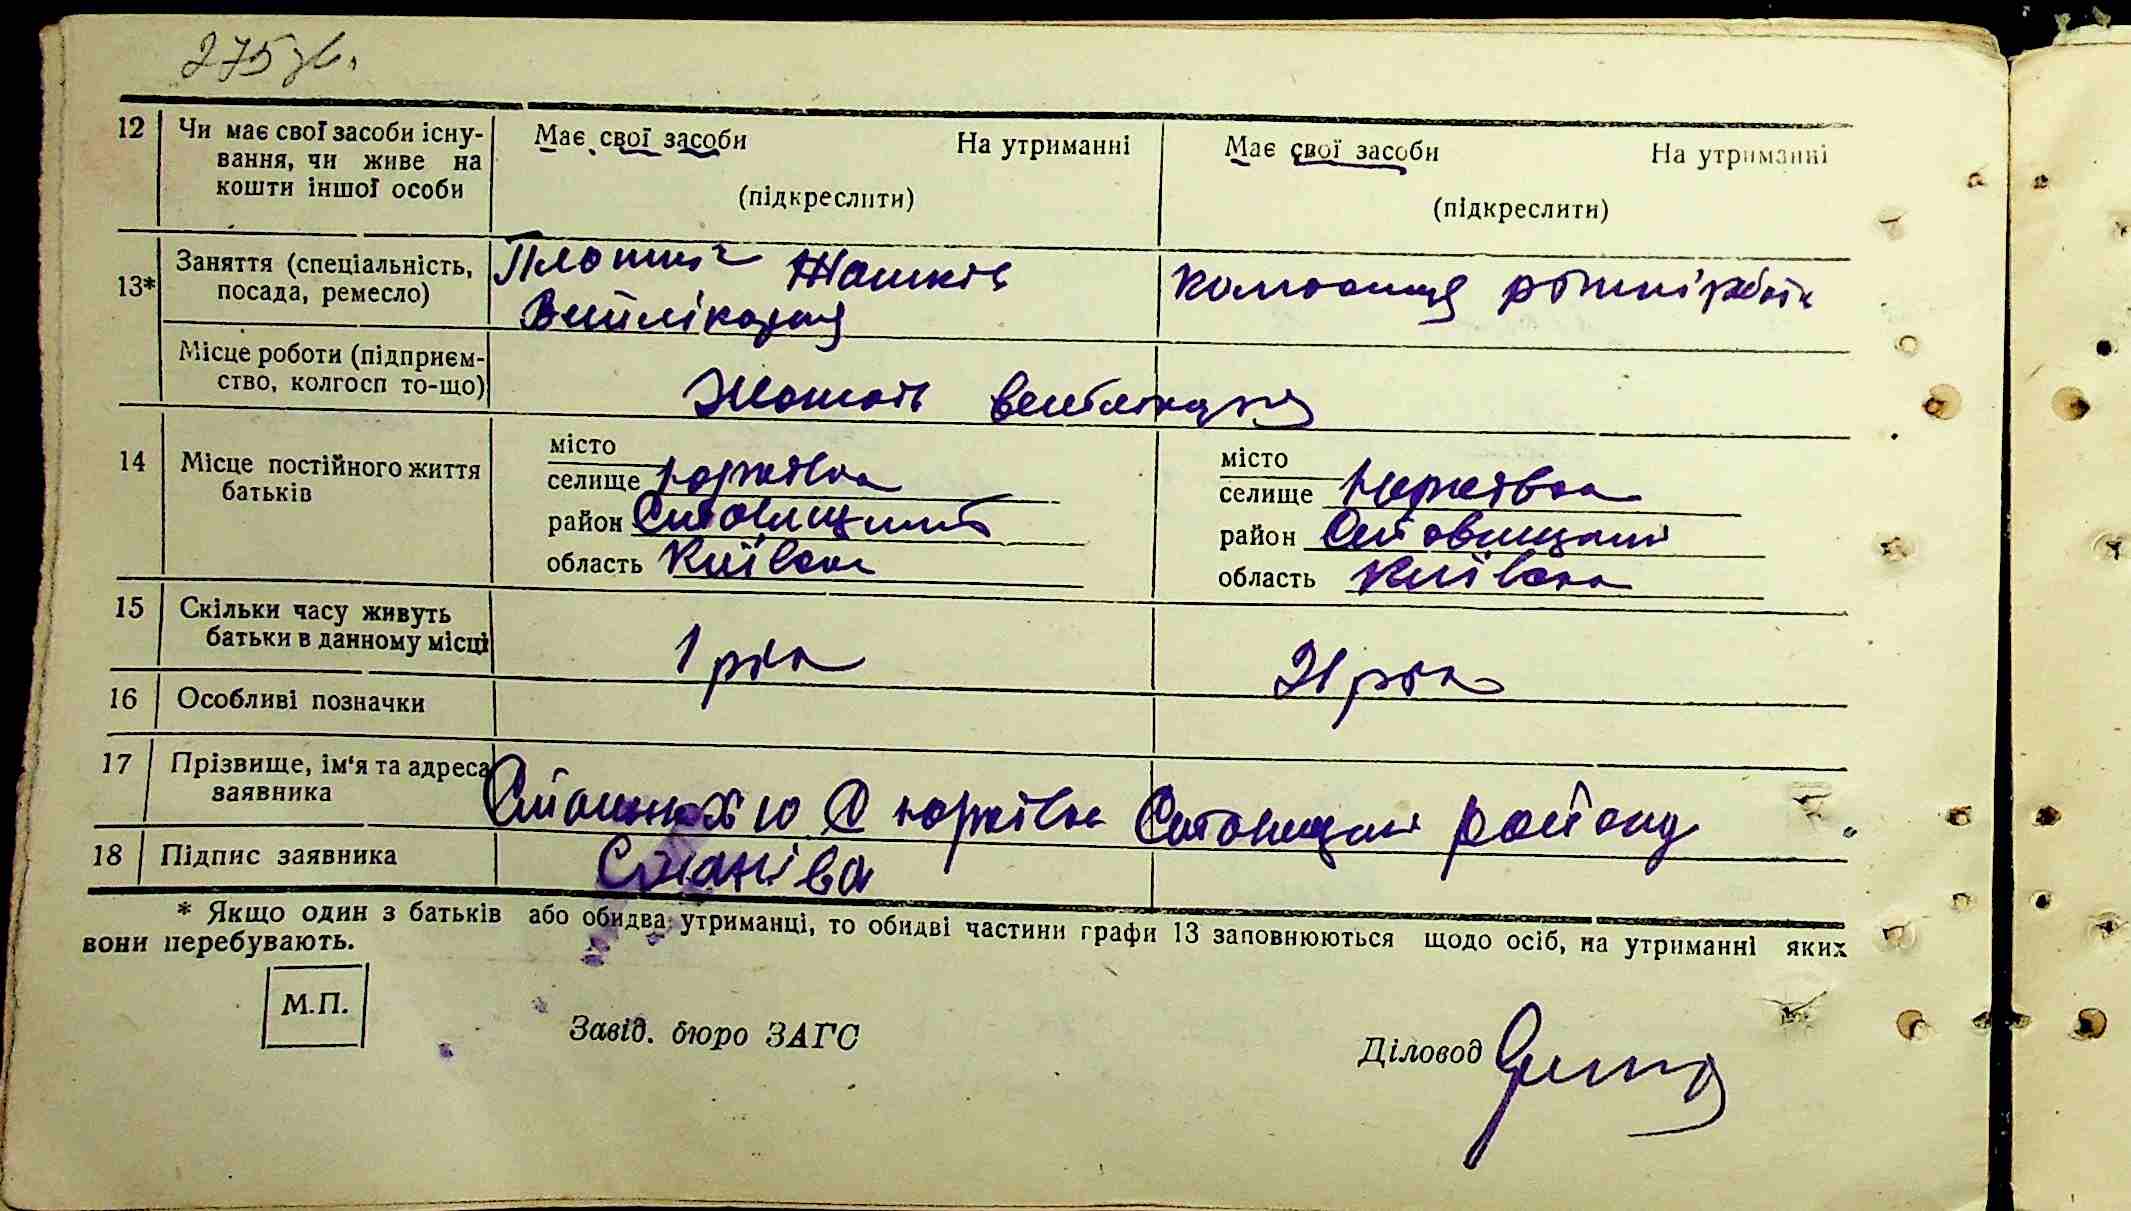 275 зв.
12 Чи має свої засоби існу- Має свої засоби На утриманні Має свої засоби На утриманні
вання, чи живе на
кошти іншої особи (підкреслити) (підкреслити)
13* Заняття (спеціальність, Плотник Жашків
посада, ремесло) колгоспниця різні
Місце роботи (підприєм-
ство, колгосп то-що)
14 Місце постійного життя
батьків
місто місто
селище Юрківка селище Юрківка
район Ставищанський район Ставищанський
область Київська область Київська
15 Скільки часу живуть
батьки в данному місці 1 рік 21 рік
16 Особливі позначки
17 Прізвище, ім'я та адреса
заявника Юрківка району
18 Підпис заявника
* Якщо один з батьків або обидва утриманці, то обидві частини графи 13 заповнюються щодо осіб, на утриманні яких
вони перебувають.
М.П.
Завід. бюро ЗАГС Діловод